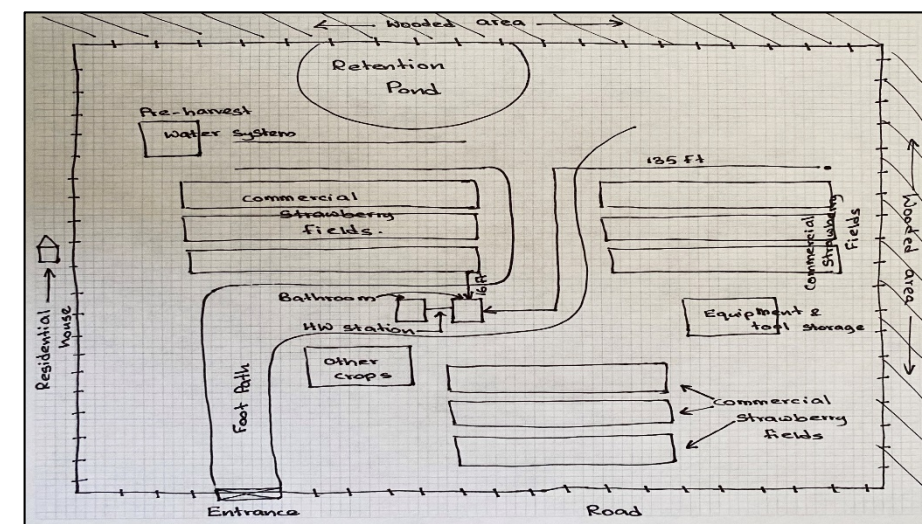 Wooded area
Retention
Pond
Pre-harvest
Water system
135 ft
Commercial
Strawberry
fields.
Commercial
Strawberry
Fields
Wooded area
16 ft
Bathroom
HW station
Equipment &
tool storage
Residential
house
Other
crops
Foot Path
Commercial
Strawberry
fields
Entrance
Road